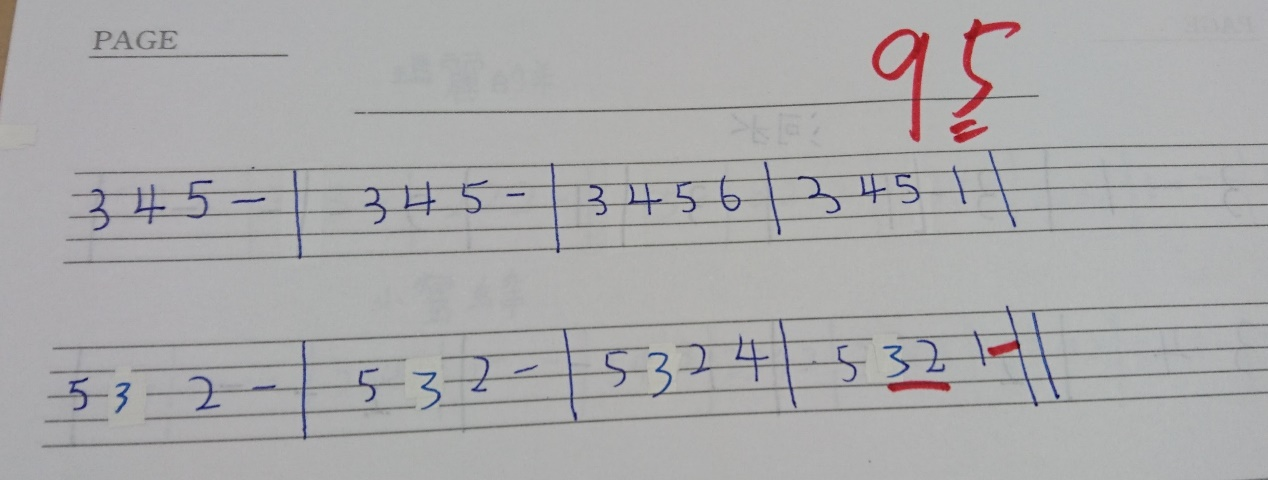 PAGE
95
3 4 5 - | 3 4 5 - | 3 4 5 6 | 3 4 5 1 |
5 3 2 - | 5 3 2 - | 5 3 2 4 | 5 3 2 1 - ||